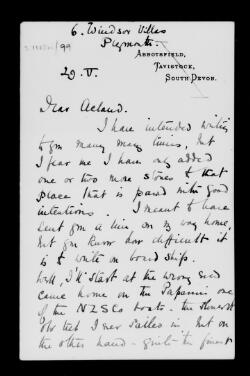 6. Windsor Villas
Plymouth.
/99
ABBOTSFIELD,
TAVISTOCK,
SOUTH DEVON.
29. V.
Dear Acland.
I have intended writing
to you many many times, but
I fear me I have only added
one or two more stones to that
place that is paved with good
intentions. I meant to have
sent you a line on my way home,
but you know how difficult it
is to write on board ship.
Well, I'll start at the wrong end
came home on the Papanui one
of the NZSCo boats - the slowest
old tub I ever sailed in, but on
the other hand - quite the finest